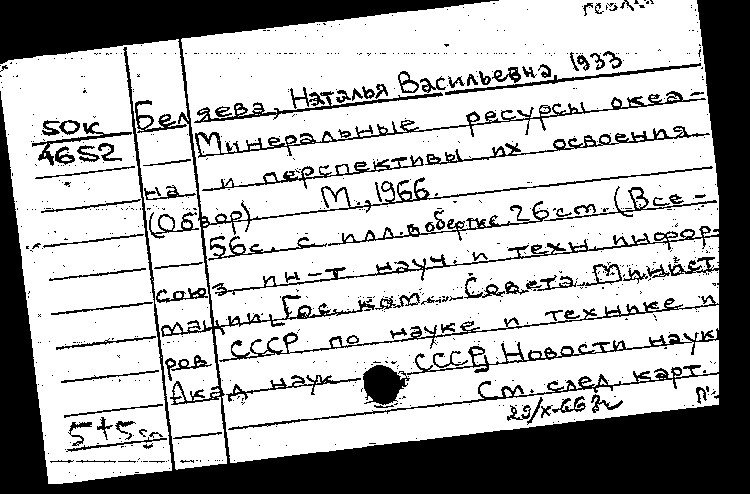 геолог
Беляева, Наталья Васильевна, 1933
50к
4652
Минеральные ресурсы океа-
на и перспективы их освоения.
(Обзор). М., 1966.
56с. с илл. в обертке. 26 cm. (Все-
союз. ин-т науч. и техн. инфор-
мации, Гос. ком. Совета Минист
ров СССР по науке и технике и
Акад. наук СССР). Новости науки
См. след. карт.
5+5
29/X-66